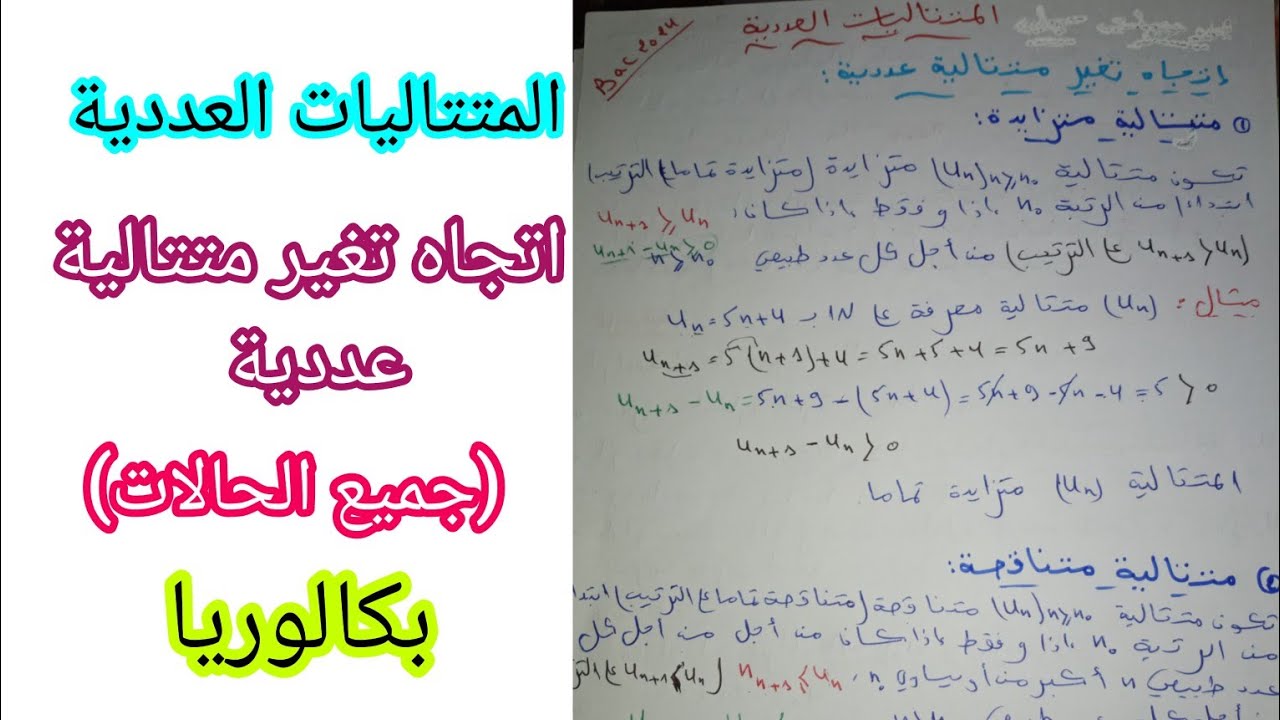 المتتاليات العددية
اتجاه تغير متتالية
عددية
(جميع الحالات)
بكالوريا
المتتاليات العددية
Bac 2024
اتجاه تغير متتالية عددية:
① متتالية متزايدة:
تكون متتالية (Un)n≥n₀ متزايدة (متزايدة تماما ع الترتيب)
ابتداءا من الرتبة n₀ إذا وفقط إذا كان: Un+1 ≥ Un
(Un+1 > Un ع الترتيب) من أجل كل عدد طبيعي n≥n₀
Un+1 - Un ≥ 0
مثال: (Un) متتالية معرفة ع IN بـ Un = 5n+4
Un+1 = 5(n+1)+4 = 5n+5+4 = 5n+9
Un+1 - Un = 5n+9-(5n+4) = 5n+9-5n-4 = 5 > 0
Un+1 - Un > 0
المتتالية (Un) متزايدة تماما.
② متتالية متناقصة:
تكون متتالية (Un)n≥n₀ متناقصة (متناقصة تماما ع الترتيب) ابتدا
من الرتبة n₀ إذا وفقط إذا كان من أجل من أجل كل
عدد طبيعي n أكبر من أو يساوي n₀، Un+1 ≤ Un (Un+1 < Un ع التر